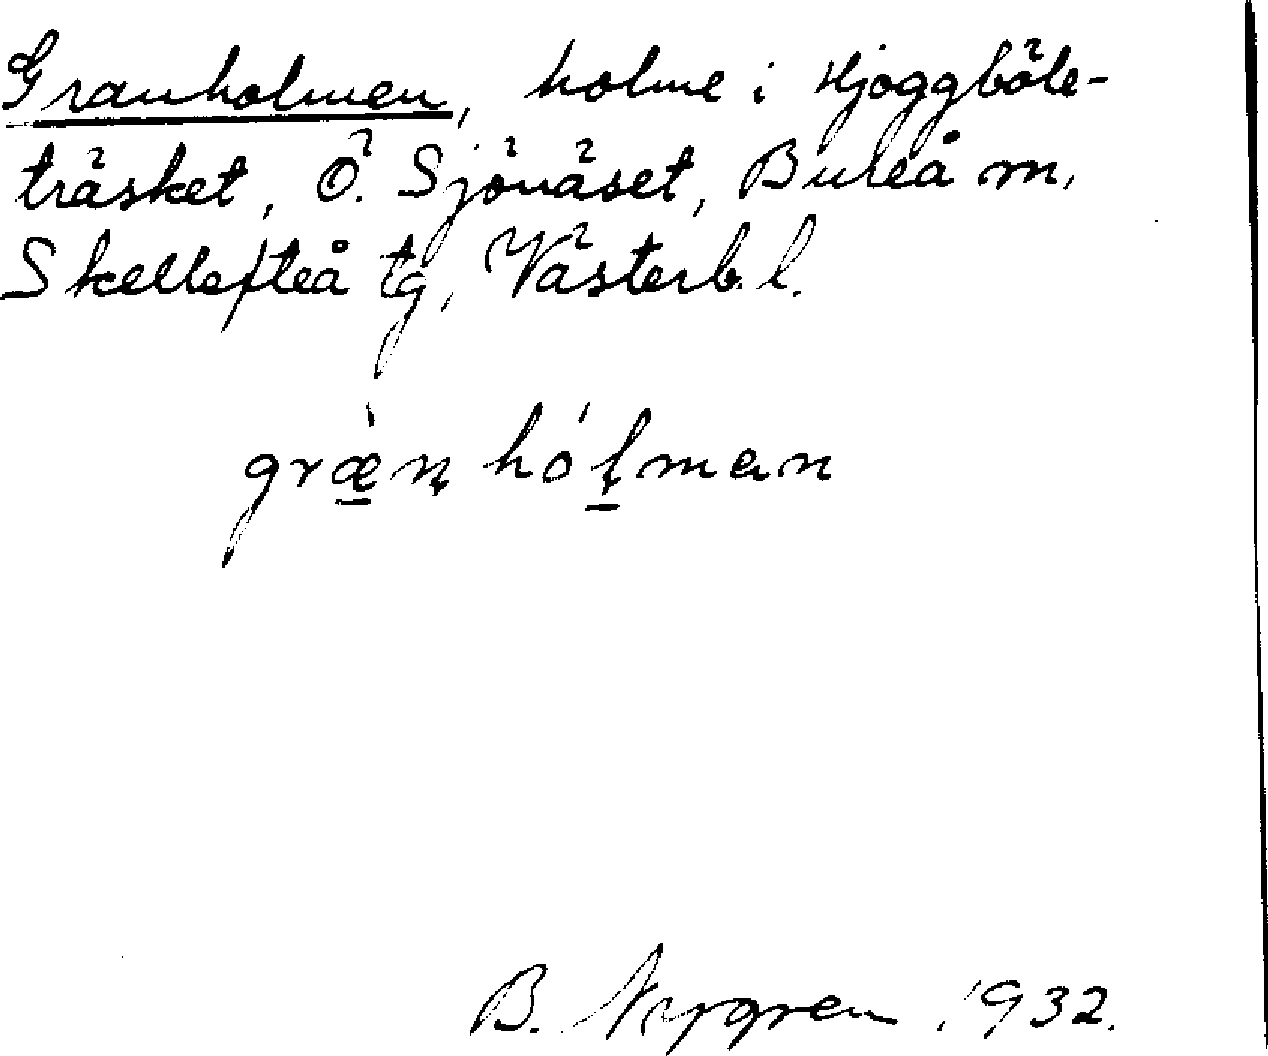 Granholmen, holme i Hjoggböle-
träsket, Ö. Sjönäset, Bureå m,
Skellefteå tg, Västerb. l.
græ̀n hóḷman
B. Nygren 1932.